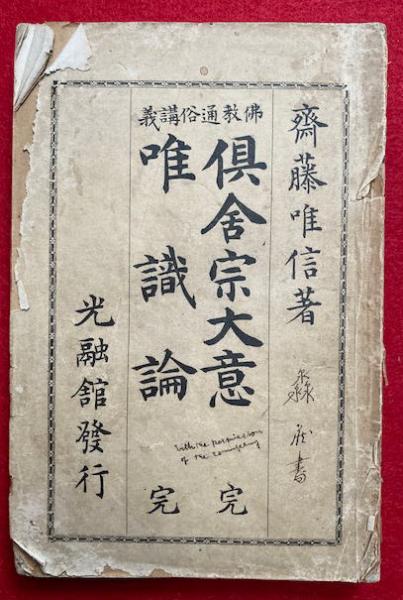 齋藤唯信著
佛教通俗講義
俱舍宗大意 完
唯識論 完
光融舘發行
with the permission
of the